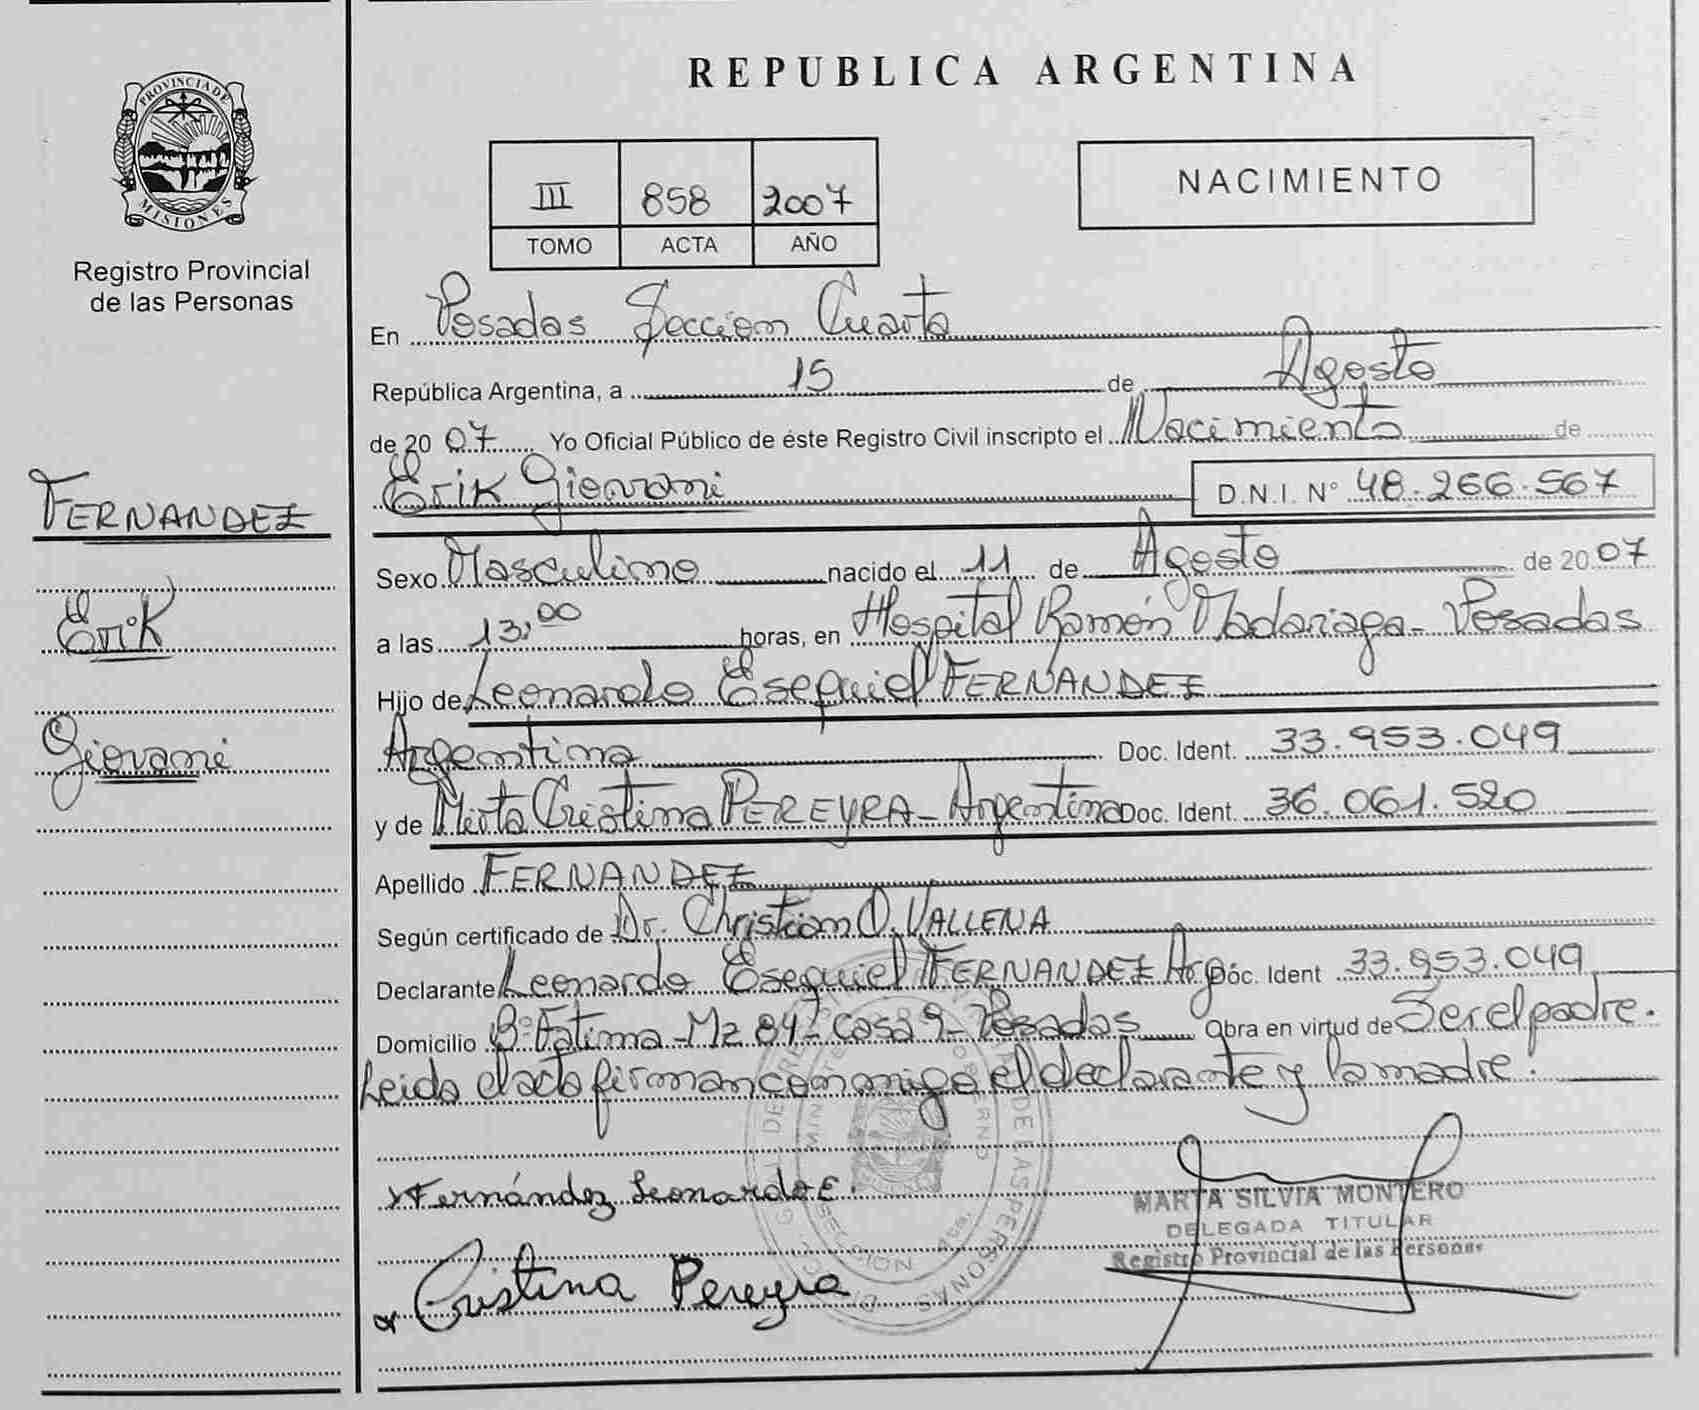 PROVINCIA DE
MISIONES
Registro Provincial
de las Personas
FERNANDEZ
Erik
Giovani
REPUBLICA ARGENTINA
III 858 2007
TOMO ACTA AÑO
NACIMIENTO
En Posadas Sección Cuarta
República Argentina, a 15 de Agosto
de 2007 Yo Oficial Público de éste Registro Civil inscripto el Nacimiento de
Erik Giovani D.N.I. N° 48.266.567
Sexo Masculino nacido el 11 de Agosto de 2007
a las 13,00 horas, en Hospital Ramón Madariaga - Posadas
Hijo de Leonardo Esequiel FERNANDEZ
Argentina Doc. Ident. 33.953.049
y de Mirta Cristina PEREYRA - Argentina Doc. Ident. 36.061.520
Apellido FERNANDEZ
Según certificado de Dr. Christian O. VALLENA
Declarante Leonardo Esequiel FERNANDEZ Arg. Doc. Ident 33.953.049
Domicilio B° Fátima - Mz 84 - casa 9 - Posadas Obra en virtud de Ser el padre.
Leido el acto firman conmigo el declarante y la madre.
x Fernández Leonardo E.
MARTA SILVIA MONTERO
DELEGADA TITULAR
Registro Provincial de las Personas
x Cristina Pereyra